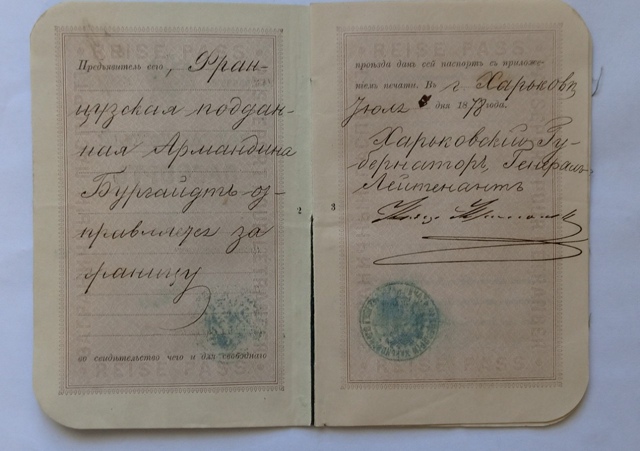 REISE PASS
Предъявитель сего, Фран-
цузская поддан-
ная Армандина
Бургайдтъ от-
правляется за
границу
во свидѣтельство чего и для свободнаго
REISE PASS
2
REISE PASS
проѣзда данъ сей паспортъ съ приложе-
ніемъ печати. Въ г. Харьковѣ
Іюля дня 1878 года.
Харьковскій Гу-
бернаторъ, Генералъ-
Лейтенантъ
3